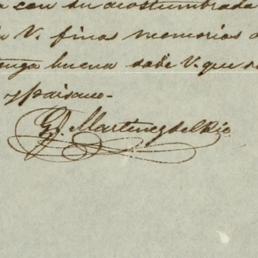 con su acostumbrada
V. finas memorias
tengo buena sabe V. que
y paisano
G. Martinez del Rio